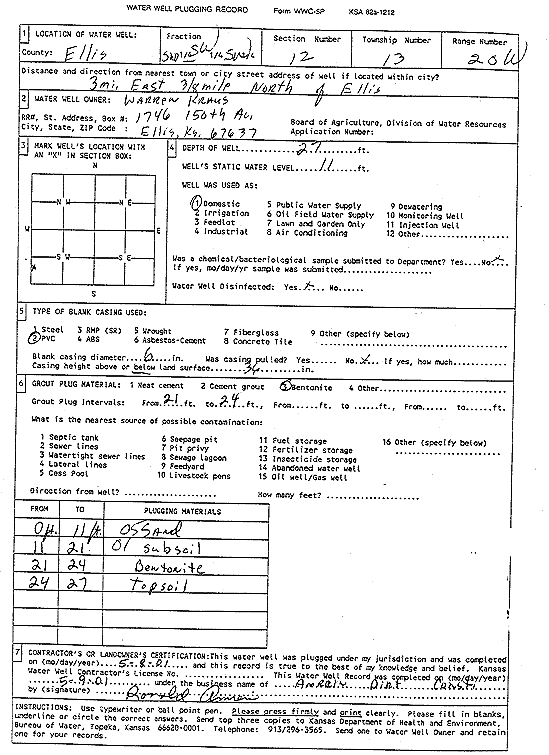 WATER WELL PLUGGING RECORD Form WWC-5P KSA 82a-1212
1 LOCATION OF WATER WELL: Fraction Section Number Township Number Range Number
County: Ellis SW 1/4 12 13 20W
Distance and direction from nearest town or city street address of well if located within city?
3mi. East 3/8 mile North of Ellis
2 WATER WELL OWNER: Warren Kraus
RR#, St. Address, Box #: 1746 150th Av. Board of Agriculture, Division of Water Resources
City, State, ZIP Code : Ellis, Ks. 67637 Application Number:
3 MARK WELL'S LOCATION WITH AN "X" IN SECTION BOX:
N
NW NE
W E
SW SE
X
S
4 DEPTH OF WELL 27 ft.
WELL'S STATIC WATER LEVEL 11 ft.
WELL WAS USED AS:
1 Domestic 5 Public Water Supply 9 Dewatering
2 Irrigation 6 Oil Field Water Supply 10 Monitoring Well
3 Feedlot 7 Lawn and Garden Only 11 Injection Well
4 Industrial 8 Air Conditioning 12 Other
Was a chemical/bacteriological sample submitted to Department? Yes.... No X
If yes, mo/day/yr sample was submitted
Water Well Disinfected: Yes X No
5 TYPE OF BLANK CASING USED:
1 Steel 3 RMP (SR) 5 Wrought 7 Fiberglass 9 Other (specify below)
2 PVC 4 ABS 6 Asbestos-Cement 8 Concrete Tile
Blank casing diameter 6 in. Was casing pulled? Yes...... No X If yes, how much
Casing height above or below land surface 36 in.
6 GROUT PLUG MATERIAL: 1 Neat cement 2 Cement grout 3 Bentonite 4 Other
Grout Plug Intervals: From 21 ft. to 24 ft., From......ft. to ......ft., From...... to......ft.
What is the nearest source of possible contamination:
1 Septic tank 6 Seepage pit 11 Fuel storage 16 Other (specify below)
2 Sewer lines 7 Pit privy 12 Fertilizer storage
3 Watertight sewer lines 8 Sewage lagoon 13 Insecticide storage
4 Lateral lines 9 Feedyard 14 Abandoned water well
5 Cess Pool 10 Livestock pens 15 Oil well/Gas well
Direction from well? How many feet?
FROM TO PLUGGING MATERIALS
0 ft. 11 ft. Sand
11 21 subsoil
21 24 Bentonite
24 27 Topsoil
7 CONTRACTOR'S OR LANDOWNER'S CERTIFICATION: This water well was plugged under my jurisdiction and was completed
on (mo/day/year) 5-8-01 and this record is true to the best of my knowledge and belief. Kansas
Water Well Contractor's License No. This Water Well Record was completed on (mo/day/year)
5-9-01 under the business name of Dirt Const.
by (signature) Ronald
INSTRUCTIONS: Use typewriter or ball point pen. Please press firmly and print clearly. Please fill in blanks,
underline or circle the correct answers. Send top three copies to Kansas Department of Health and Environment,
Bureau of Water, Topeka, Kansas 66620-0001. Telephone: 913/296-3565. Send one to Water Well Owner and retain
one for your records.